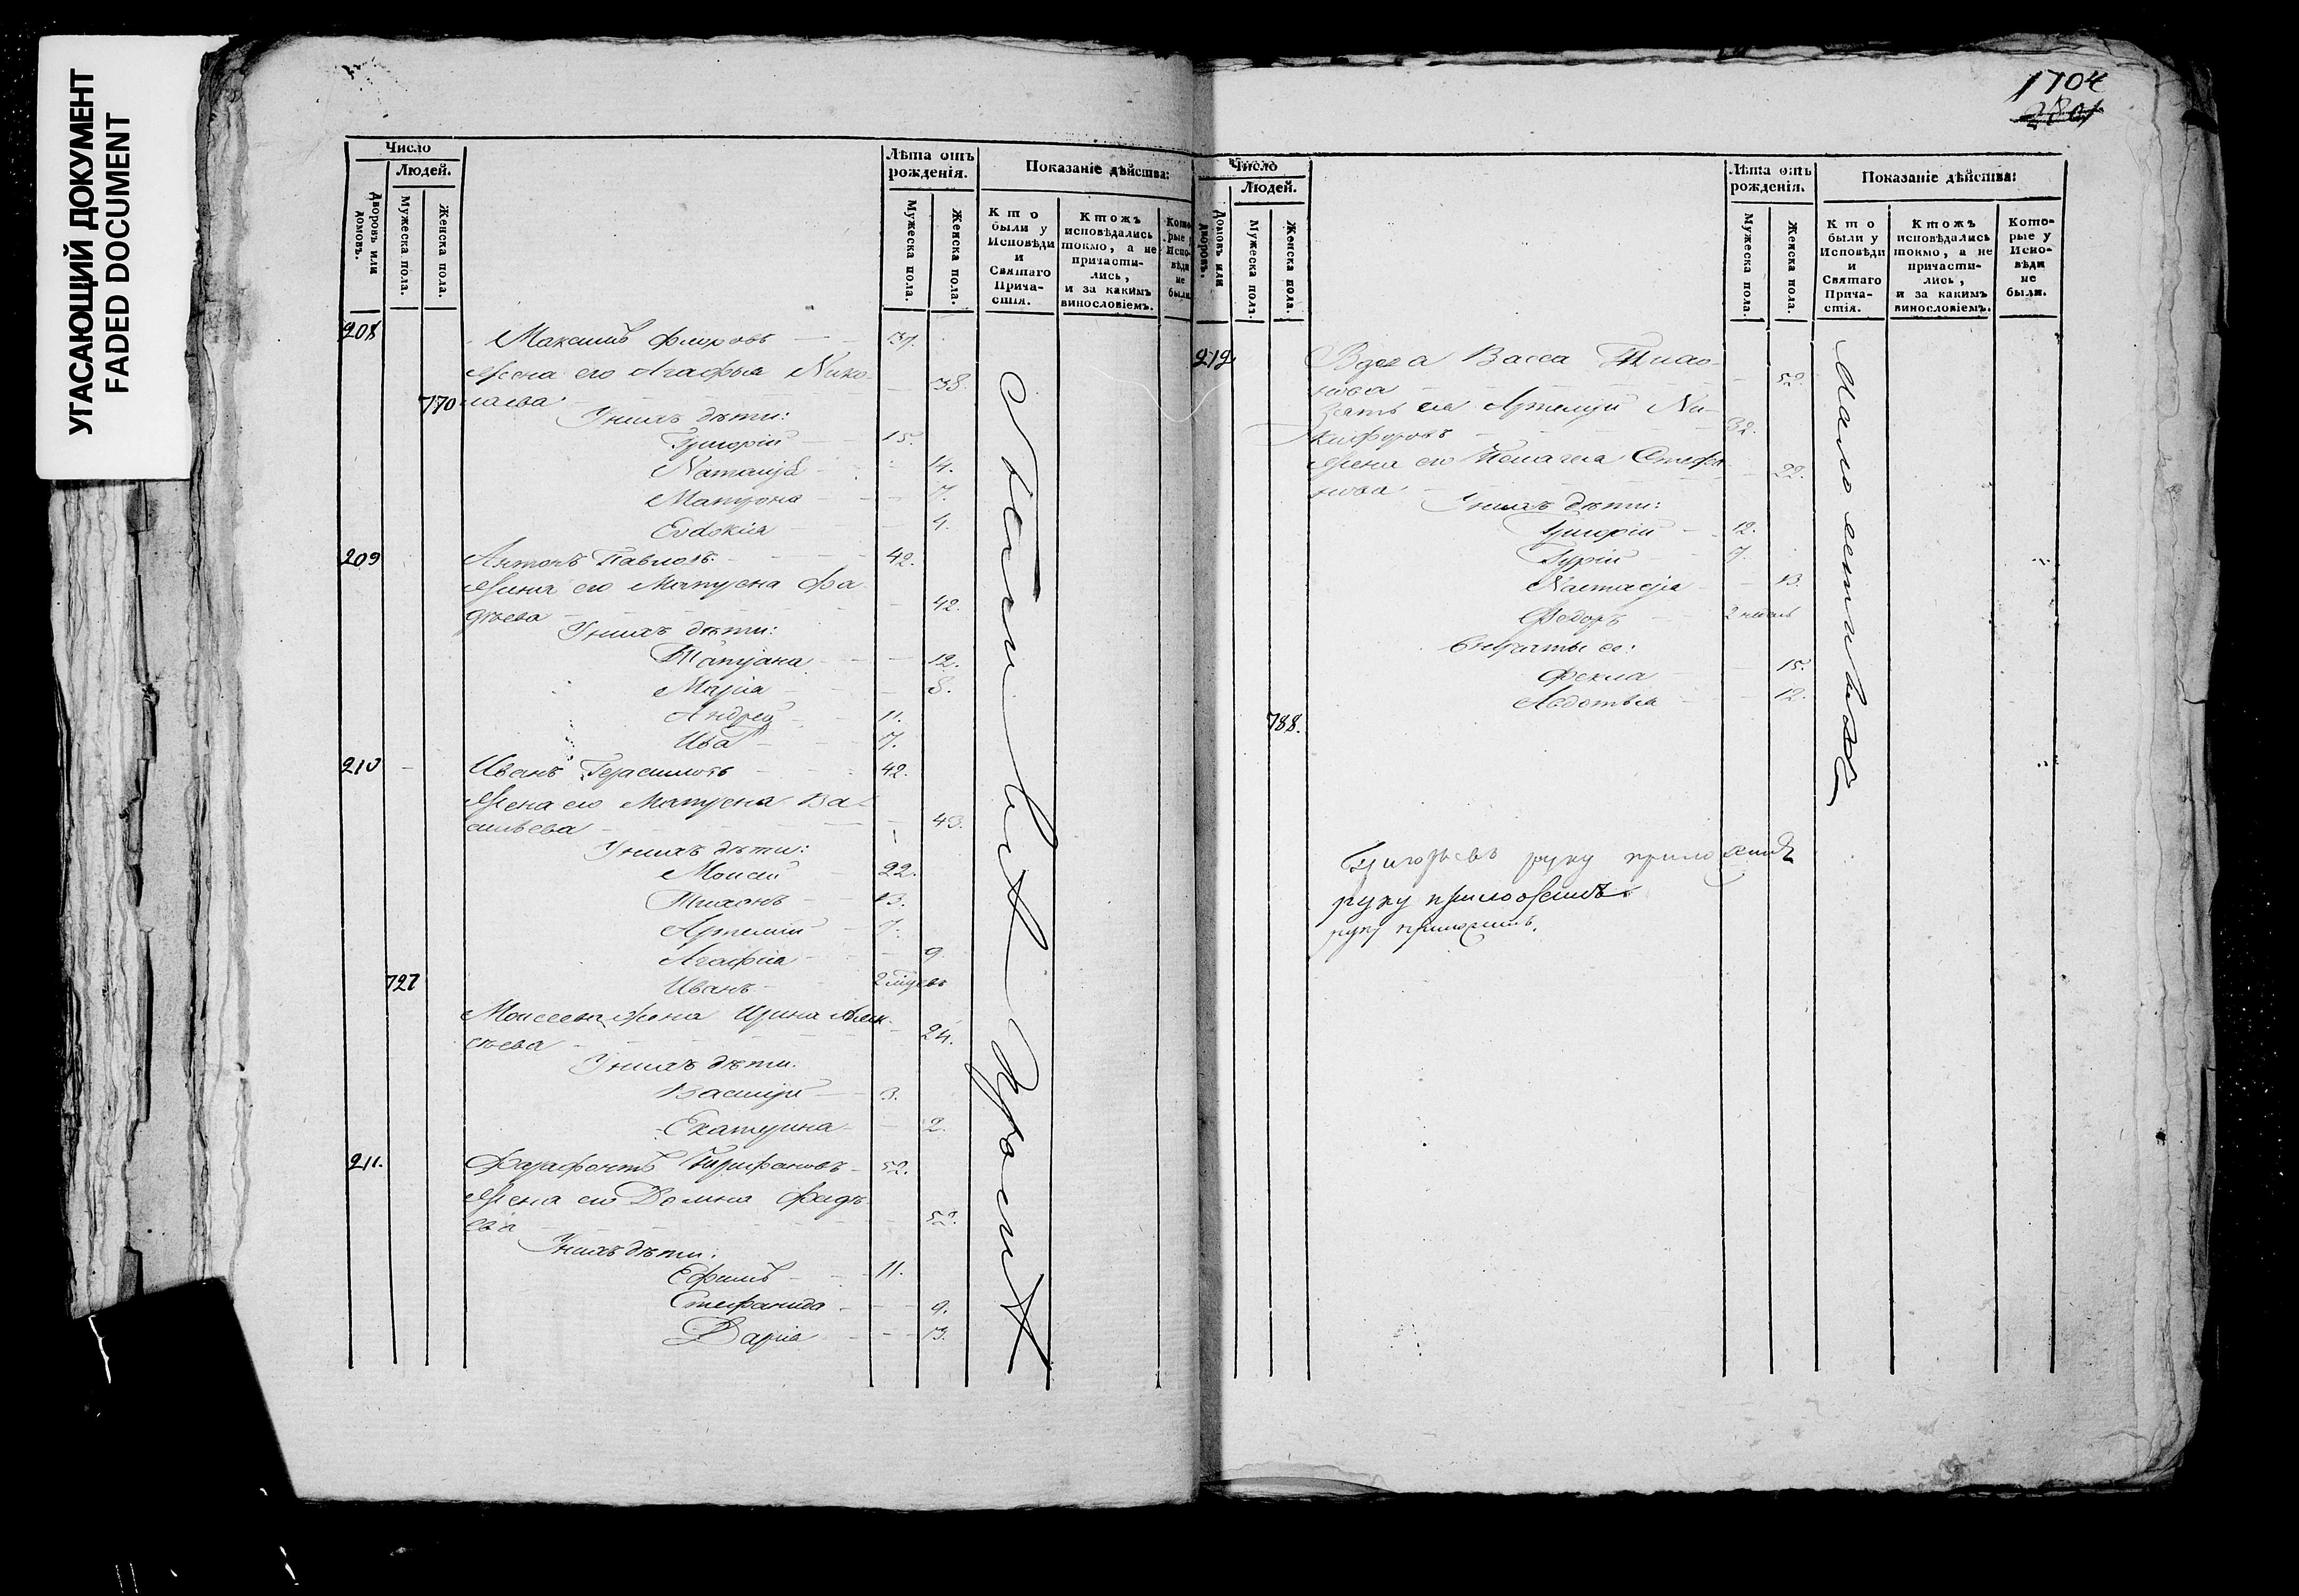 УГАСАЮЩИЙ ДОКУМЕНТ
FADED DOCUMENT
Число
Людей.
Дворовъ или домовъ.
Мужеска пола.
Женска пола.
Лѣта отъ рожденія.
Мужеска пола.
Женска пола.
Показаніе дѣйства:
Кто были у Исповѣди и Святаго Прича-стія.
Ктожъ исповѣдались токмо, а не причасти-лись, и за какимъ винословіемъ.
Кото рые Испо-вѣди не были
208 Максимъ Флоровъ 37.
Жена его Агафья Нико-
лаева 38.
770
У нихъ дѣти:
Григорій 15.
Наталья 14.
Матрона 7.
Евдокія 4.
209 Антонъ Павловъ 42.
Жена его Матрена Фа-
дѣева 42.
У нихъ дѣти:
Татіана 12.
Марія 8.
Андрей 11.
Ива 7.
210 Иванъ Герасимовъ 42.
Жена его Матрена Ва-
сильева 43.
У нихъ дѣти:
Моисей 22.
Тихонъ 13.
Артемій 7.
Агафія 9.
727 Иванъ
Моисеева жена Ирина Алек-
сѣева 24.
У нихъ дѣти:
Василій 3.
Екатерина 2.
211. Фарафонтъ Трифоновъ 52.
Жена его Домна Фадѣ-
ева 52.
У нихъ дѣти:
Ефимъ 11.
Стефанида 9.
Дарія
1704
Число
Людей.
Домовъ или дворовъ.
Мужеска пола.
Женска пола.
Лѣта отъ рожденія.
Мужеска пола.
Женска пола.
Показаніе дѣйства:
Кто были у Исповѣди и Святаго Прича-стія.
Ктожъ исповѣдались токмо, а не причасти-лись, и за какимъ винословіемъ.
Кото-рые у Испо-вѣди не были.
212 Вдова Васса Тихо-
нова 52.
Зять ея Артемій Ни-
кифоровъ 32.
Жена его Пелагея Стефа-
нова 22.
У нихъ дѣти:
Григорій 12.
Гурій 7.
Настасія 13.
Федоръ 2
Фекла 15.
Авдотья 12.
788.
Григорьевъ руку приложилъ
руку приложилъ
руку приложилъ.